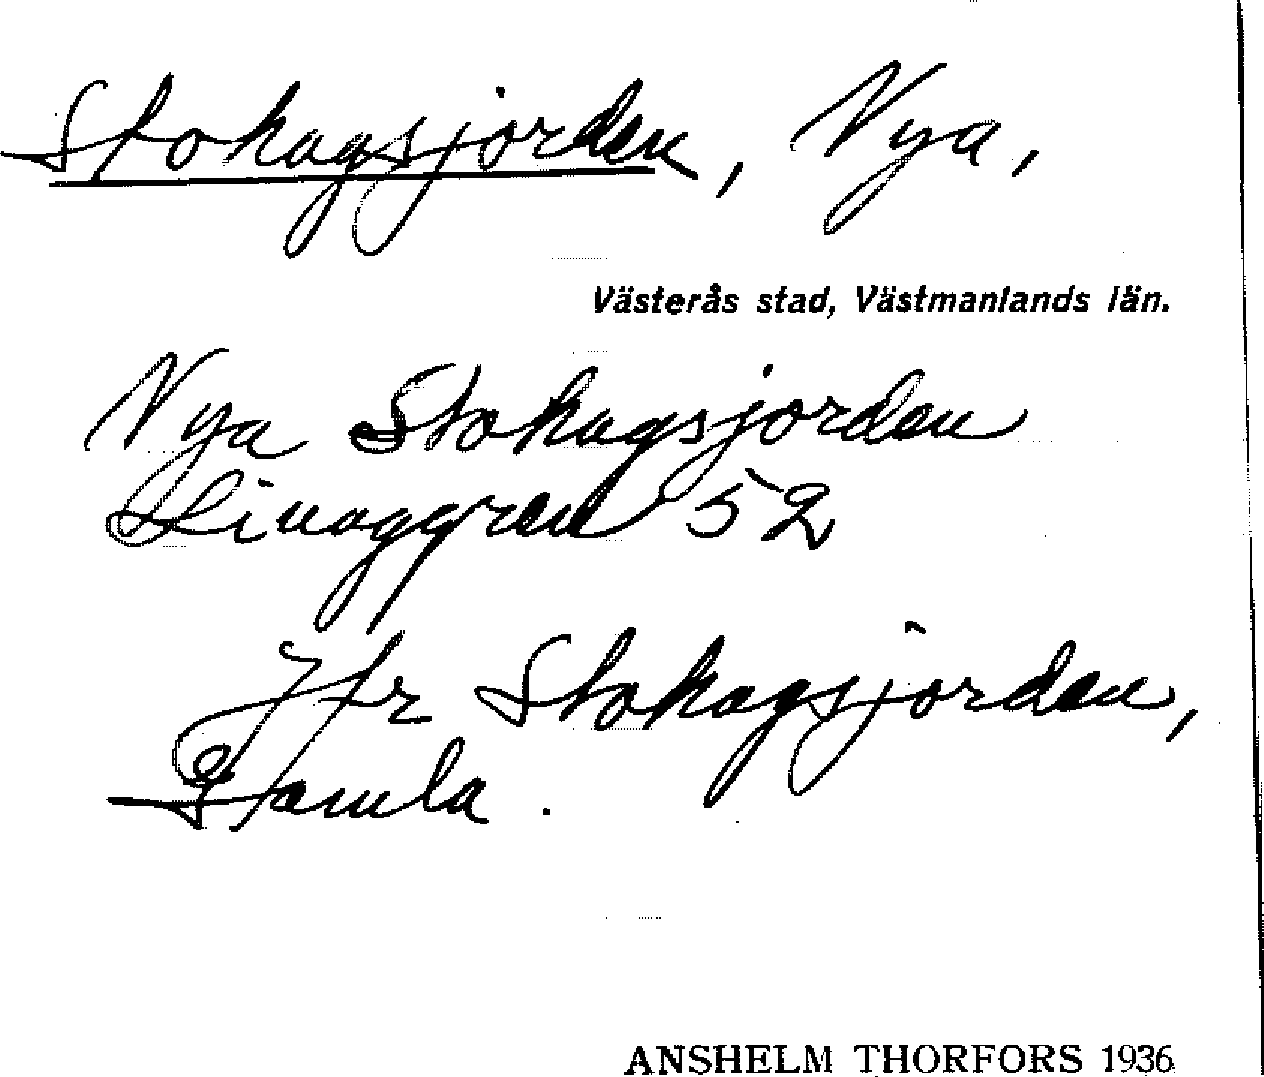 Stohagsjorden, Nya,
Västerås stad, Västmanlands län.
Nya Stohagsjorden
52
Jfr Stohagsjorden,
Gamla.
ANSHELM THORFORS 1936